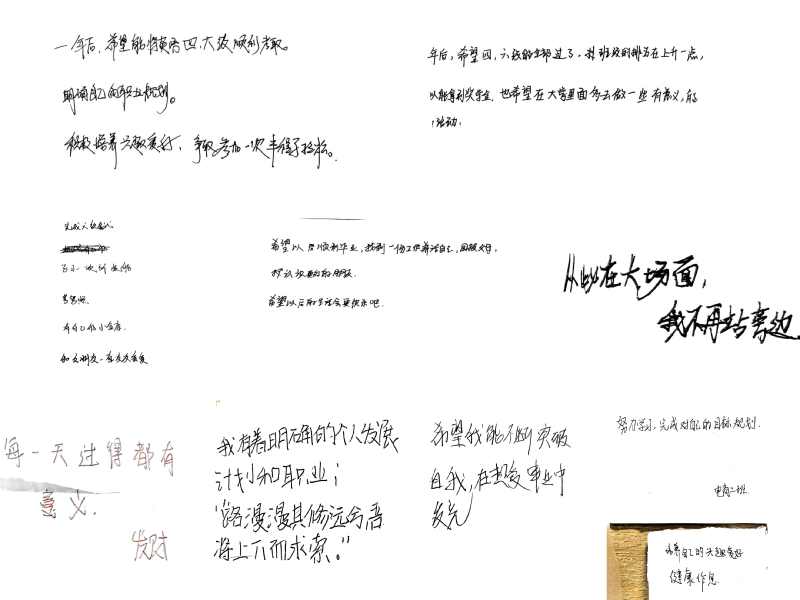 一年后，希望能将英语四、六级顺利考取。
明确自己的职业规划。
积极培养兴趣爱好，争取参加一次
年后，希望四、六级能全部过了，班级的排名在上升一点，
以能拿到奖学金，也希望在大学里面多去做一些有意义，的
活动。
完成六级考试
有自己的小金库
和女朋友一起
希望以后顺利毕业，找到一份工作养活自己，回报父母。
希望以后的生活会更快乐吧
从此在大场面，
我不再站旁边
每一天过得都有
意义.
发财
我有着明确的个人发展
计划和职业；
“路漫漫其修远兮吾
将上下而求索。”
希望我能不断突破
自我，在热爱事业中
发光
努力学习，完成对自己的目标规划.
电商二班
培养自己的兴趣爱好
健康作息